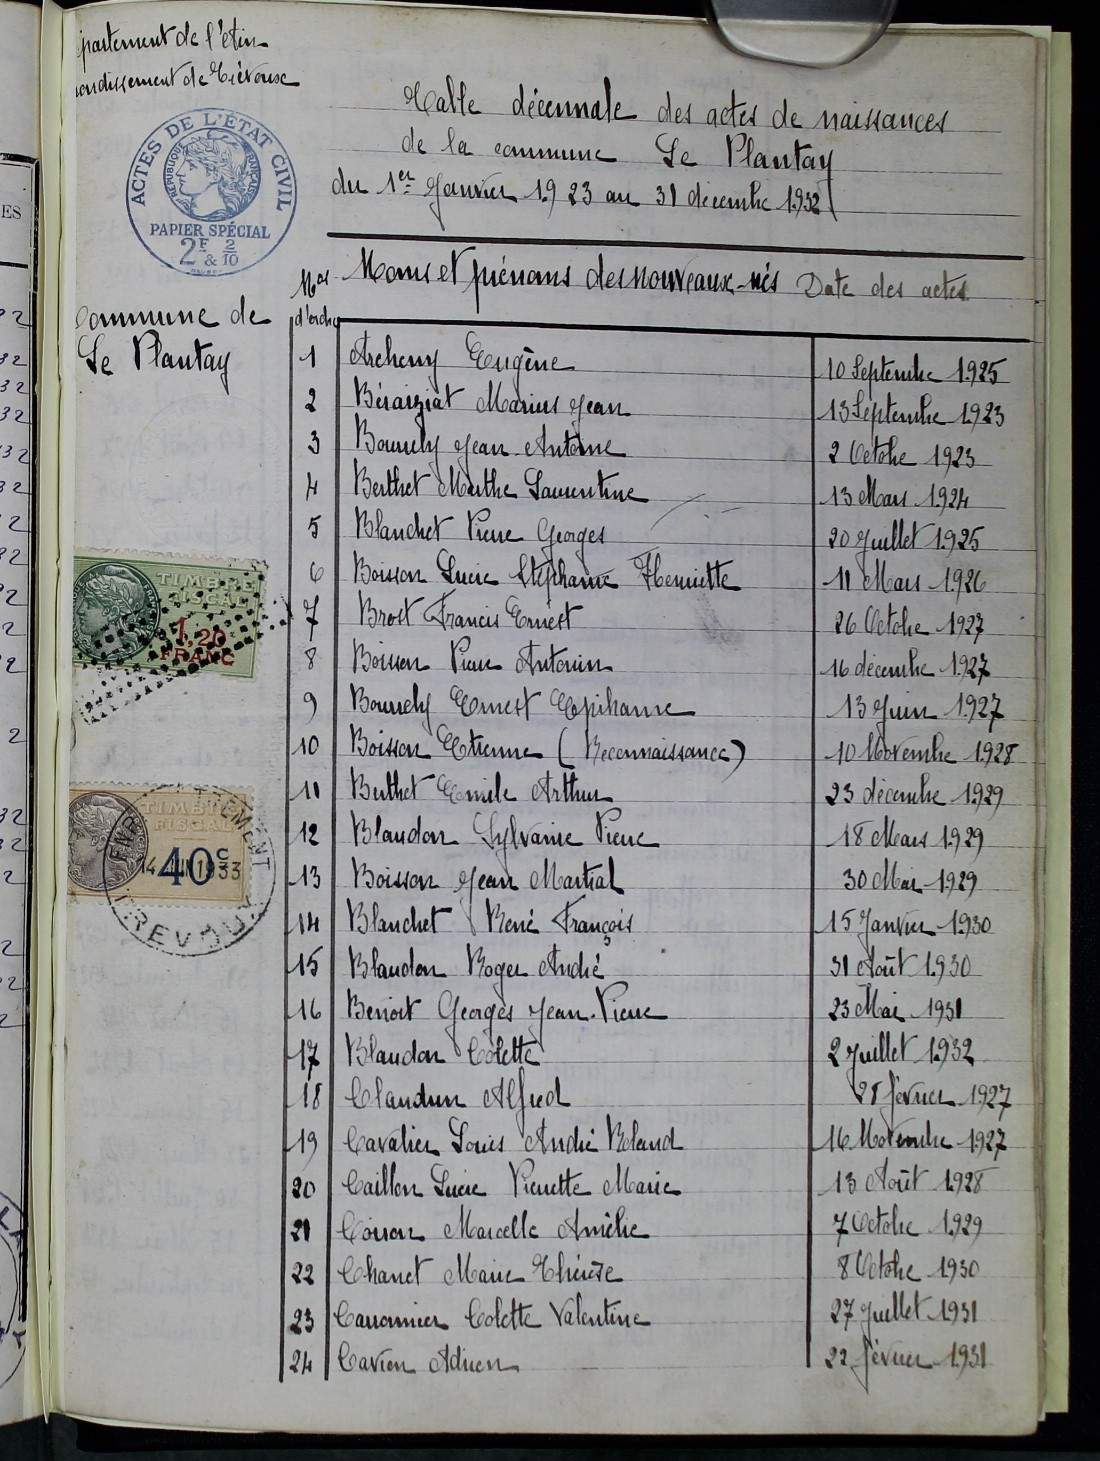 partement de l'Ain
ondissement de Trévoux
Table décennale des actes de naissances
de la commune Le Plantay
du 1er Janvier 1923 au 31 décembre 1932
ACTES DE L'ÉTAT CIVIL
RÉPUBLIQUE FRANÇAISE
PAPIER SPÉCIAL
2F & 2/10
Commune de
Le Plantay
Nos d'ordre Noms et prénoms des nouveaux-nés Date des actes
1 Archeny Eugène 10 Septembre 1925
2 Béraiziat Marius Jean 13 Septembre 1923
3 Bourrely Jean Antoine 2 Octobre 1923
4 Berthet Marthe Laurentine 13 Mars 1924
5 Blanchet Pierre Georges 20 Juillet 1925
6 Boisson Lucie Stéphanie Henriette 11 Mars 1926
7 Brost Francis Ernest 26 Octobre 1927
8 Boisson Pierre Antonin 16 décembre 1927
9 Bourrely Ernest Epihane 13 Juin 1927
10 Boisson Etienne (Reconnaissance) 10 Novembre 1928
11 Berthet Emile Arthur 23 décembre 1929
12 Blaudon Sylvanie Pierre 18 Mars 1929
13 Boisson Jean Martial 30 Mai 1929
14 Blanchet René François 15 Janvier 1930
15 Blaudon Roger André 31 Août 1930
16 Benoit Georges Jean-Pierre 23 Mai 1931
17 Blaudon Colette 2 Juillet 1932
18 Alfred février 1927
19 Cavalier Louis André Roland 16 Novembre 1927
20 Caillon Lucie Pierrette Marie 13 Août 1928
21 Marcelle Amélie 7 Octobre 1929
22 Chanet Marie Thérèse 8 Octobre 1930
23 Carronnier Colette Valentine 27 Juillet 1931
24 Adrien 22 février 1931
TIMBRE
FISCAL
1,20
FRANC
TIMBRE
FISCAL
40c
1933
TREVOUX